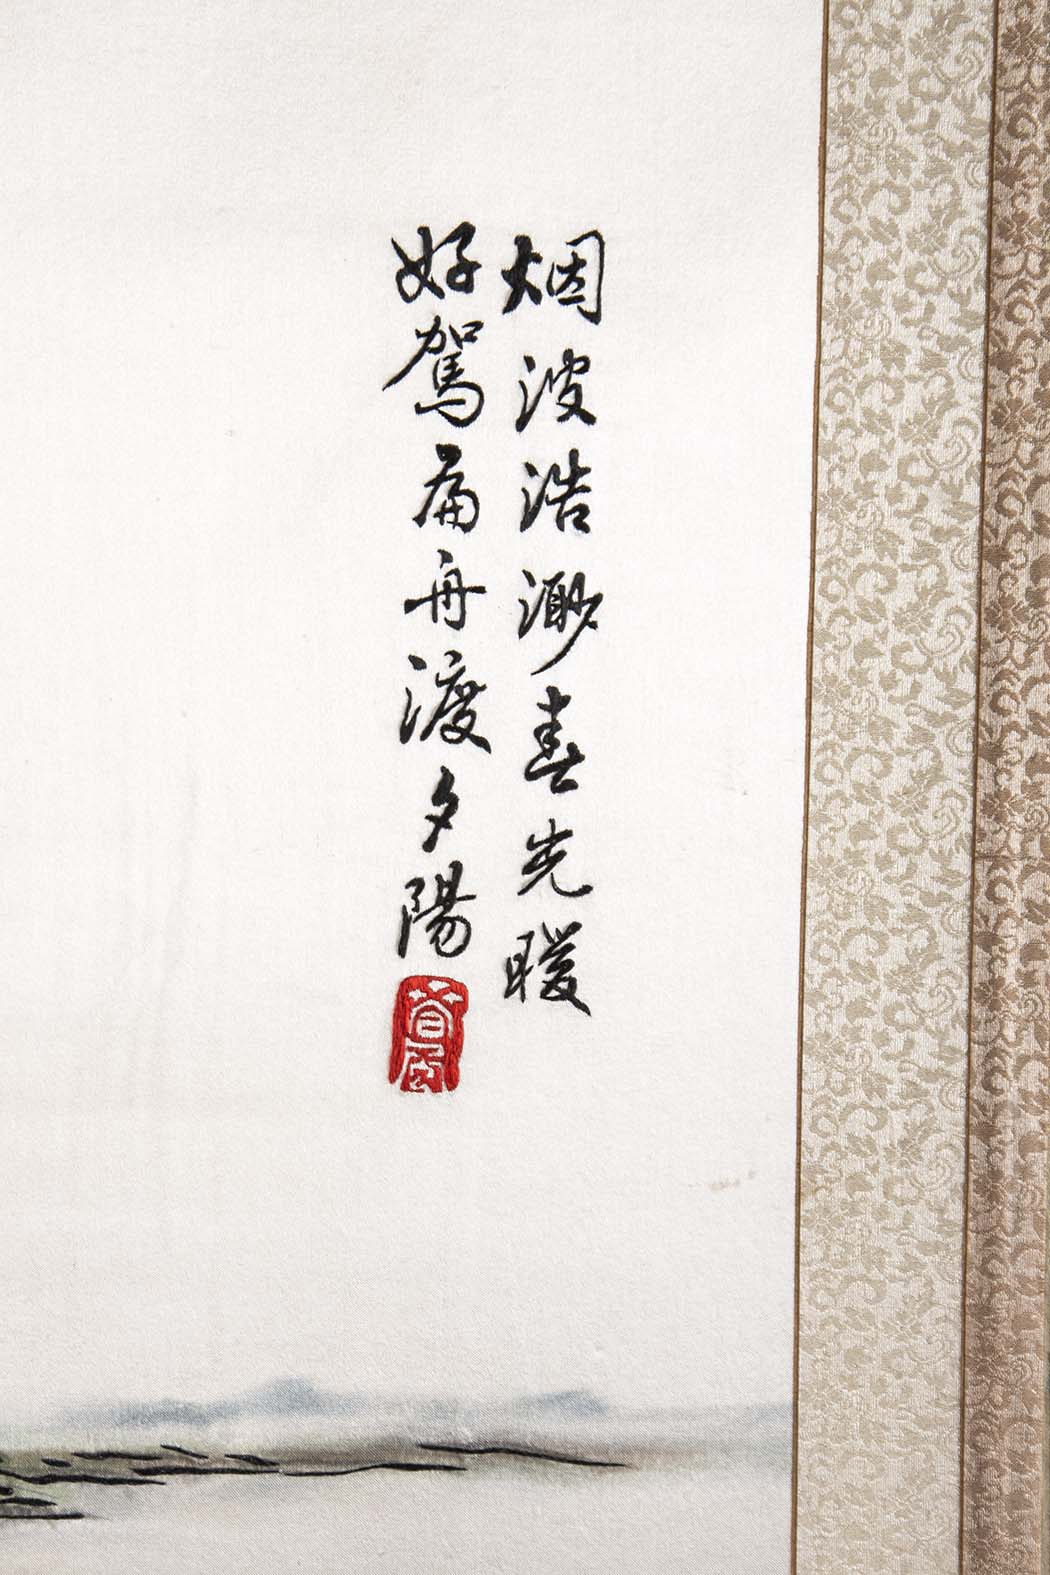 烟波浩渺春光暖
好駕扁舟渡夕陽